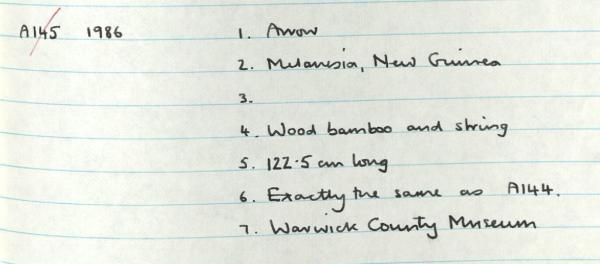 A145 1986 1. Arrow
2. Melanesia, New Guinea
3.
4. Wood bamboo and string
5. 122.5 cm long
6. Exactly the same as A144.
7. Warwick County Museum